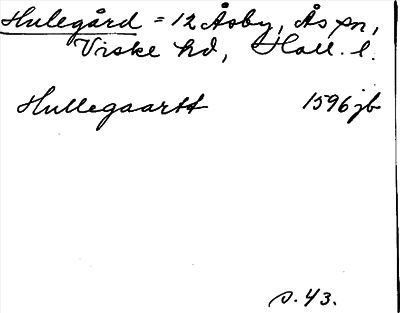 Hulegård = 12 Åsby, Ås sn,
Viske hd, Hall. l.
Hullegaartt 1596 jb
s. 43.